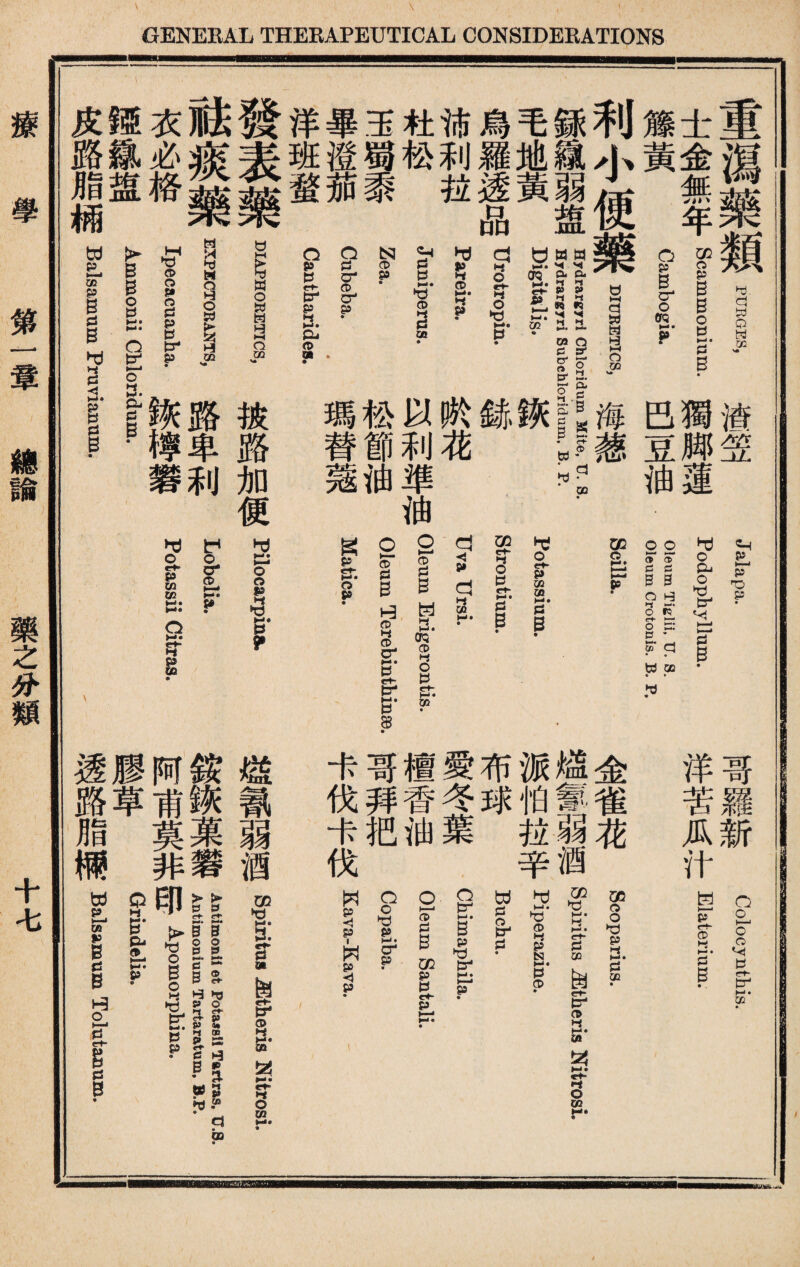 GENERAL THERAPEUTICAL CONSIDERATIONS
重瀉藥類 PURGES, 渣笠 Jalapa. 哥羅新 Colocynthis.
士金無年 Scammonium. 獨脚蓮 Podophyllum. 洋苦瓜汁 Elaterium.
籐黃 Cambogia. 巴豆油 Oleum Tiglii, U. S. Oleum Crotonis. B. P.
利小便藥 DIURETICS, 海葱 Scilla. 金雀花 Scoparius.
銾綠弱鹽 Hydrargyri Chloridum Mite, U. S. Hydrargyri Subchloridum, B. P. 熻氳弱酒 Spiritus Ætheris Nitrosi.
毛地黃 Digitalis. 鉃 Potassium. 派怕拉辛 Piperazine.
烏羅透品 Urotropin. 鉥 Strontium. 布球 Buchu.
沛利拉 Pareira. 唹花 Uva Ursi. 愛冬葉 Chimaphila.
杜松 Juniperus. 以利準油 Oleum Erigerontis. 檀香油 Oleum Santali.
玉蜀黍 Zea. 松節油 Oleum Terebinthinæ. 哥拜把 Copaiba.
畢澄茄 Cubeba. 瑪替蔻 Matica. 卡伐卡伐 Kava-Kava.
洋班蝥 Cantharides.
發表藥 DIAPHORETICS, 披路加便 Pilocarpina. 弱酒 Spiritus Ætheris Nitrosi.
祛痰藥 EXPECTORANTS, 路卑利 Lobelia. 銨鉃菓礬 Antimonii et Potassii Tartras, U.S. Antimonium Tartaratum, B.P.
衣必格 Ipecacuanha. 鉃檸礬 Potassii Citras. 阿甫莫非印 Apomorphina.
綠鹽 Ammonii Chloridum. 膠草 Grindelia.
皮路脂 Balsamum Pruvianum. 透路脂 Balsamum Tolutanum.
療學 第一章 總論 藥之分類 十七